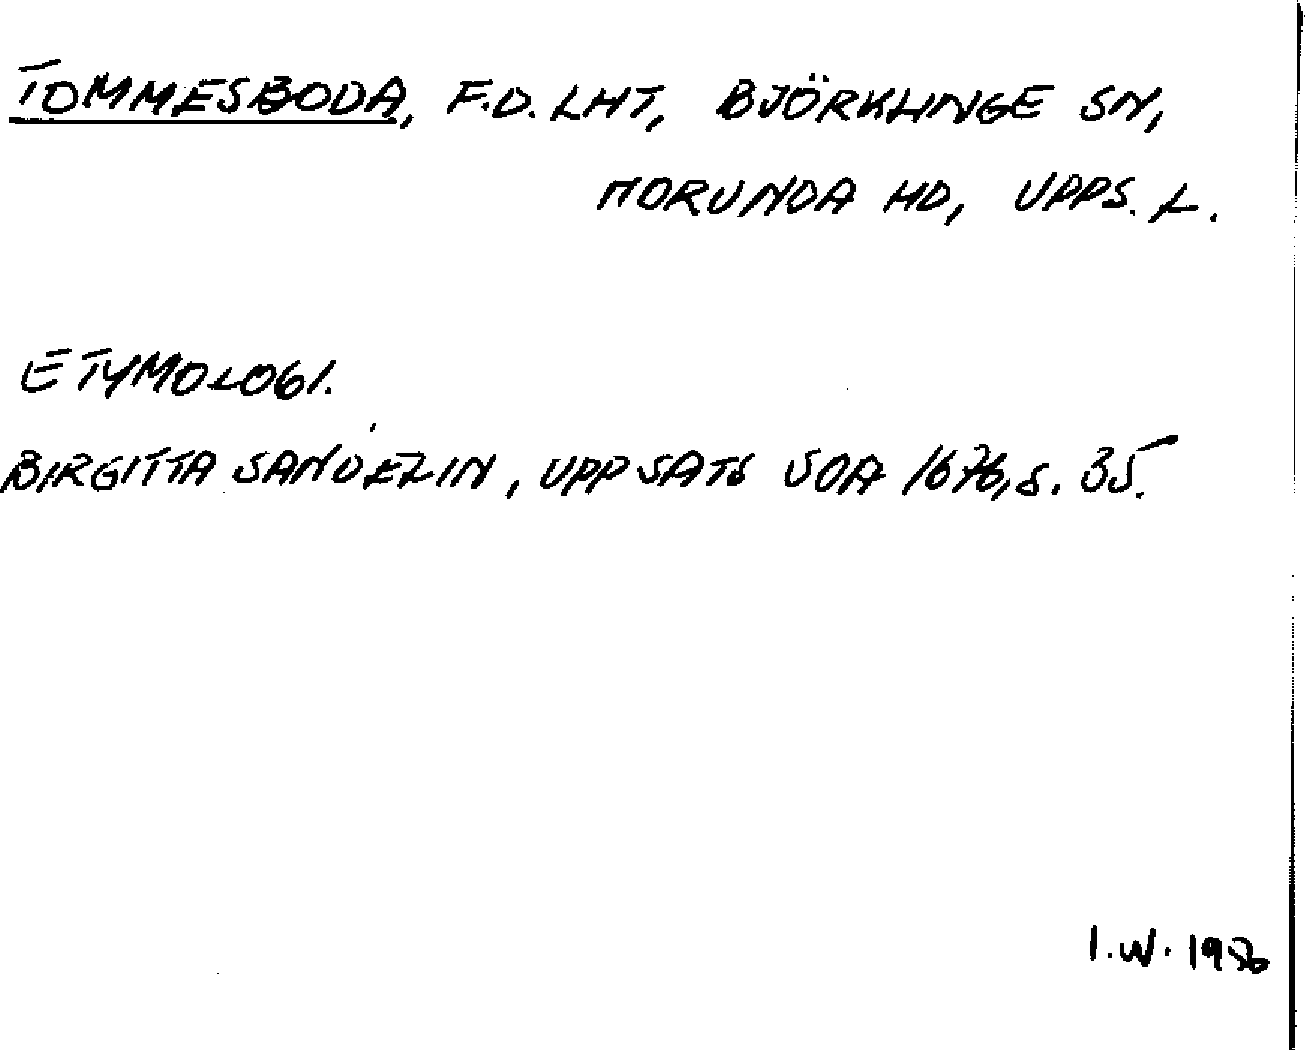 TOMMESBODA, F.D. LHT, BJÖRKLINGE SN,
NORUNDA HD, UPPS. L.
ETYMOLOGI.
BIRGITTA SANDELIN, UPPSATS SOA 1676, S. 35.
I.W. 1986